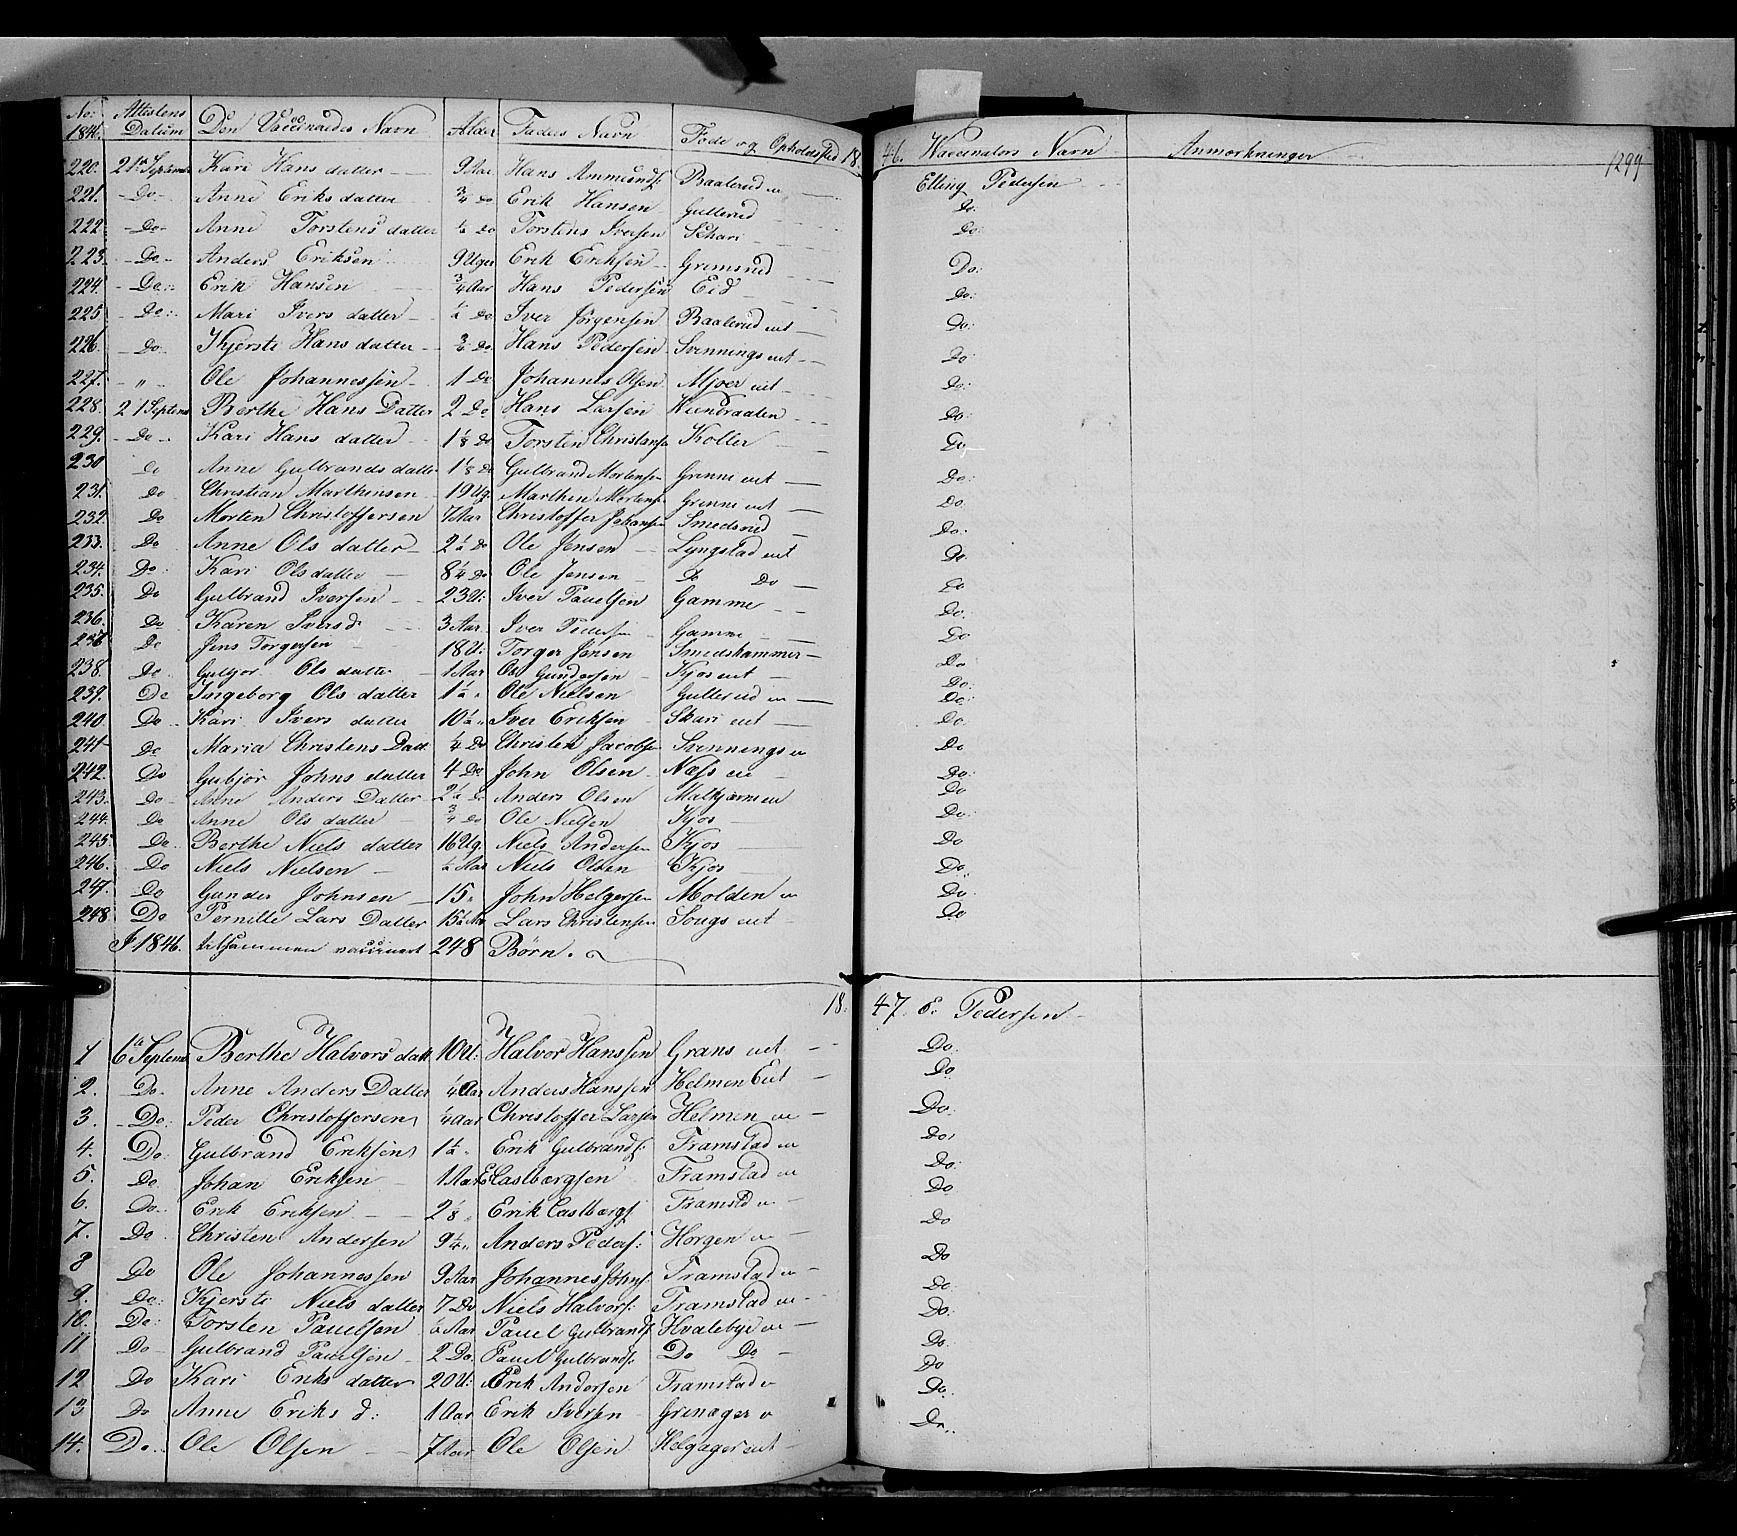 No: 1846. Attestens Datum Den Vaccineredes Navn Alder Faders Navn Føde og Opholdssted 18 46. Vaccinators Navn Anmærkninger 1299
220. 21de Septemb Kari Hans datter 9 Aar Hans Ammunds: Baalerud Elling Pedersen
221. Do Anne Eriks datter 3/4 do Erik Hansen Gullerud Do.
222. Do Anne Torstens datter do Torstens Iversen Schari Do:
223. Do Anders Eriksen 9 Uger Erik Eriksen Grimsrud Do:
224. Do: Erik Hansen 3/4 Aar Hans Pedersen Eid Do:
225 Do: Mari Ivers datter Do Iver Jørgensen Baalerud eiet Do:
226. Do Kjersti Hans datter Do Hans Pedersen Svennings eiet Do
227. " Ole Johannessen 1 Do Johannes Olsen Mjoer eiet Do:
228. 21 Septemb Berthe Hans Datter 2 Do Hans Larsen Do:
229. Do Kari Hans datter 1 1/8 Do Torsten Christians Koller Do
230 Do Anne Gulbrands datter 1 1/8 Do Gulbrand Mortensen Grinni eiet Do:
231. Do Christian Marthinsen 19 Ug. Marthin Mortens Grinni eiet Do.
232. Do Morten Christoffersen 7 Aar Christoffer Johansen Smedsrud Do:
233. Do Anne Ols datter 2 1/2 Do Ole Jensen Lyngstad eiet Do
234. Do: Kari Ols datter 8 1/4 Do Ole Jensen Do Do Do
235. Do Gulbrand Iversen 23 U: Iver Pauelsen Gamme Do.
236. Do Karen Ivers d 3 Aar. Iver Pedersen Gamme Do
237 Do Jens Torgersen 18 U: Torger Jensen Smedshammer Do
238. Do. Gubjor Ols datter 1 Aar Ole Gundersen Kjos eiet Do:
239. Do Ingeborg Ols datter 1 1/2 " Ole Nielsen Gullerud e Do:
240 Do Kari Ivers datter 10 1/2 " Iver Eriksen Skari eiet Do.
241 Do Maria Christens Datt 1/4 Do Christen Jacobsen Svennings e Do
242. Do Gubjør Johns datter 4 Do John Olsen Næss eie Do:
243. Do Anne Anders Datter 2 1/2 d Anders Olsen Malkjærns ei Do
244. Do Anne Ols datter 3/4 Do Ole Nielsen Kjos Do:
245 Do Berthe Niels datter 16 Ug. Niels Andersen Kjos Do
246. Do Niels Nielsen 1/2 Aar Niels Olsen Kjos Do.
247. Do Gunder Johnsen 15 " John Helgersen Molden e Do:
248 Do Pernille Lars Datter 15 1/2 Aar Lars Christensen Sougs eiet Do
I 1846. tilsammen vaccineret 248 Børn.
18 47. E. Pedersen
1 6te Septemb Berthe Halvors datt 10 U: Halvor Hanssen Grans eiet Do.
2. Do. Anne Anders Datter 1/4 Aar Anders Hanssen Helmen Eiet Do
3. Do: Peder Christoffersen 1/4 Aar Christoffer Larsen Helmen ei Do:
4. Do: Gulbrand Eriksen 1 1/2 " Erik Gulbrands: Framstad ei Do:
5. Do Johan Eriksen 1 Aar E Castbergsen Framstad ei Do:
6. Do: Erik Eriksen 2 1/8 " Erik Castbergs. Framstd e Do
7. Do Christen Andersen 9 1/4 " Anders Peders: Horgen e Do
8 Do Ole Johannessen 9 Aar Johannes Johns. Framstad e Do
9. Do: Kjersti Niels datter 7 Do Niels Halvors: Framstad ei Do:
10. Do: Torsten Pauelsen 1/2 Aar Pauel Gulbrands. Hvalebye ei Do.
11 Do Gulbrand Pauelsen 2 Do. Pauel Gulbrands: Do Do Do.
12 Do Kari Eriks datter 20 U: Erik Andersen Framstad e Do
13 Do Anne Eriks d: 1 Aar Erik Iversen Grinager e Do.
14. Do. Ole Olsen 7 Aar Ole Olsen Helgager eiet Do.